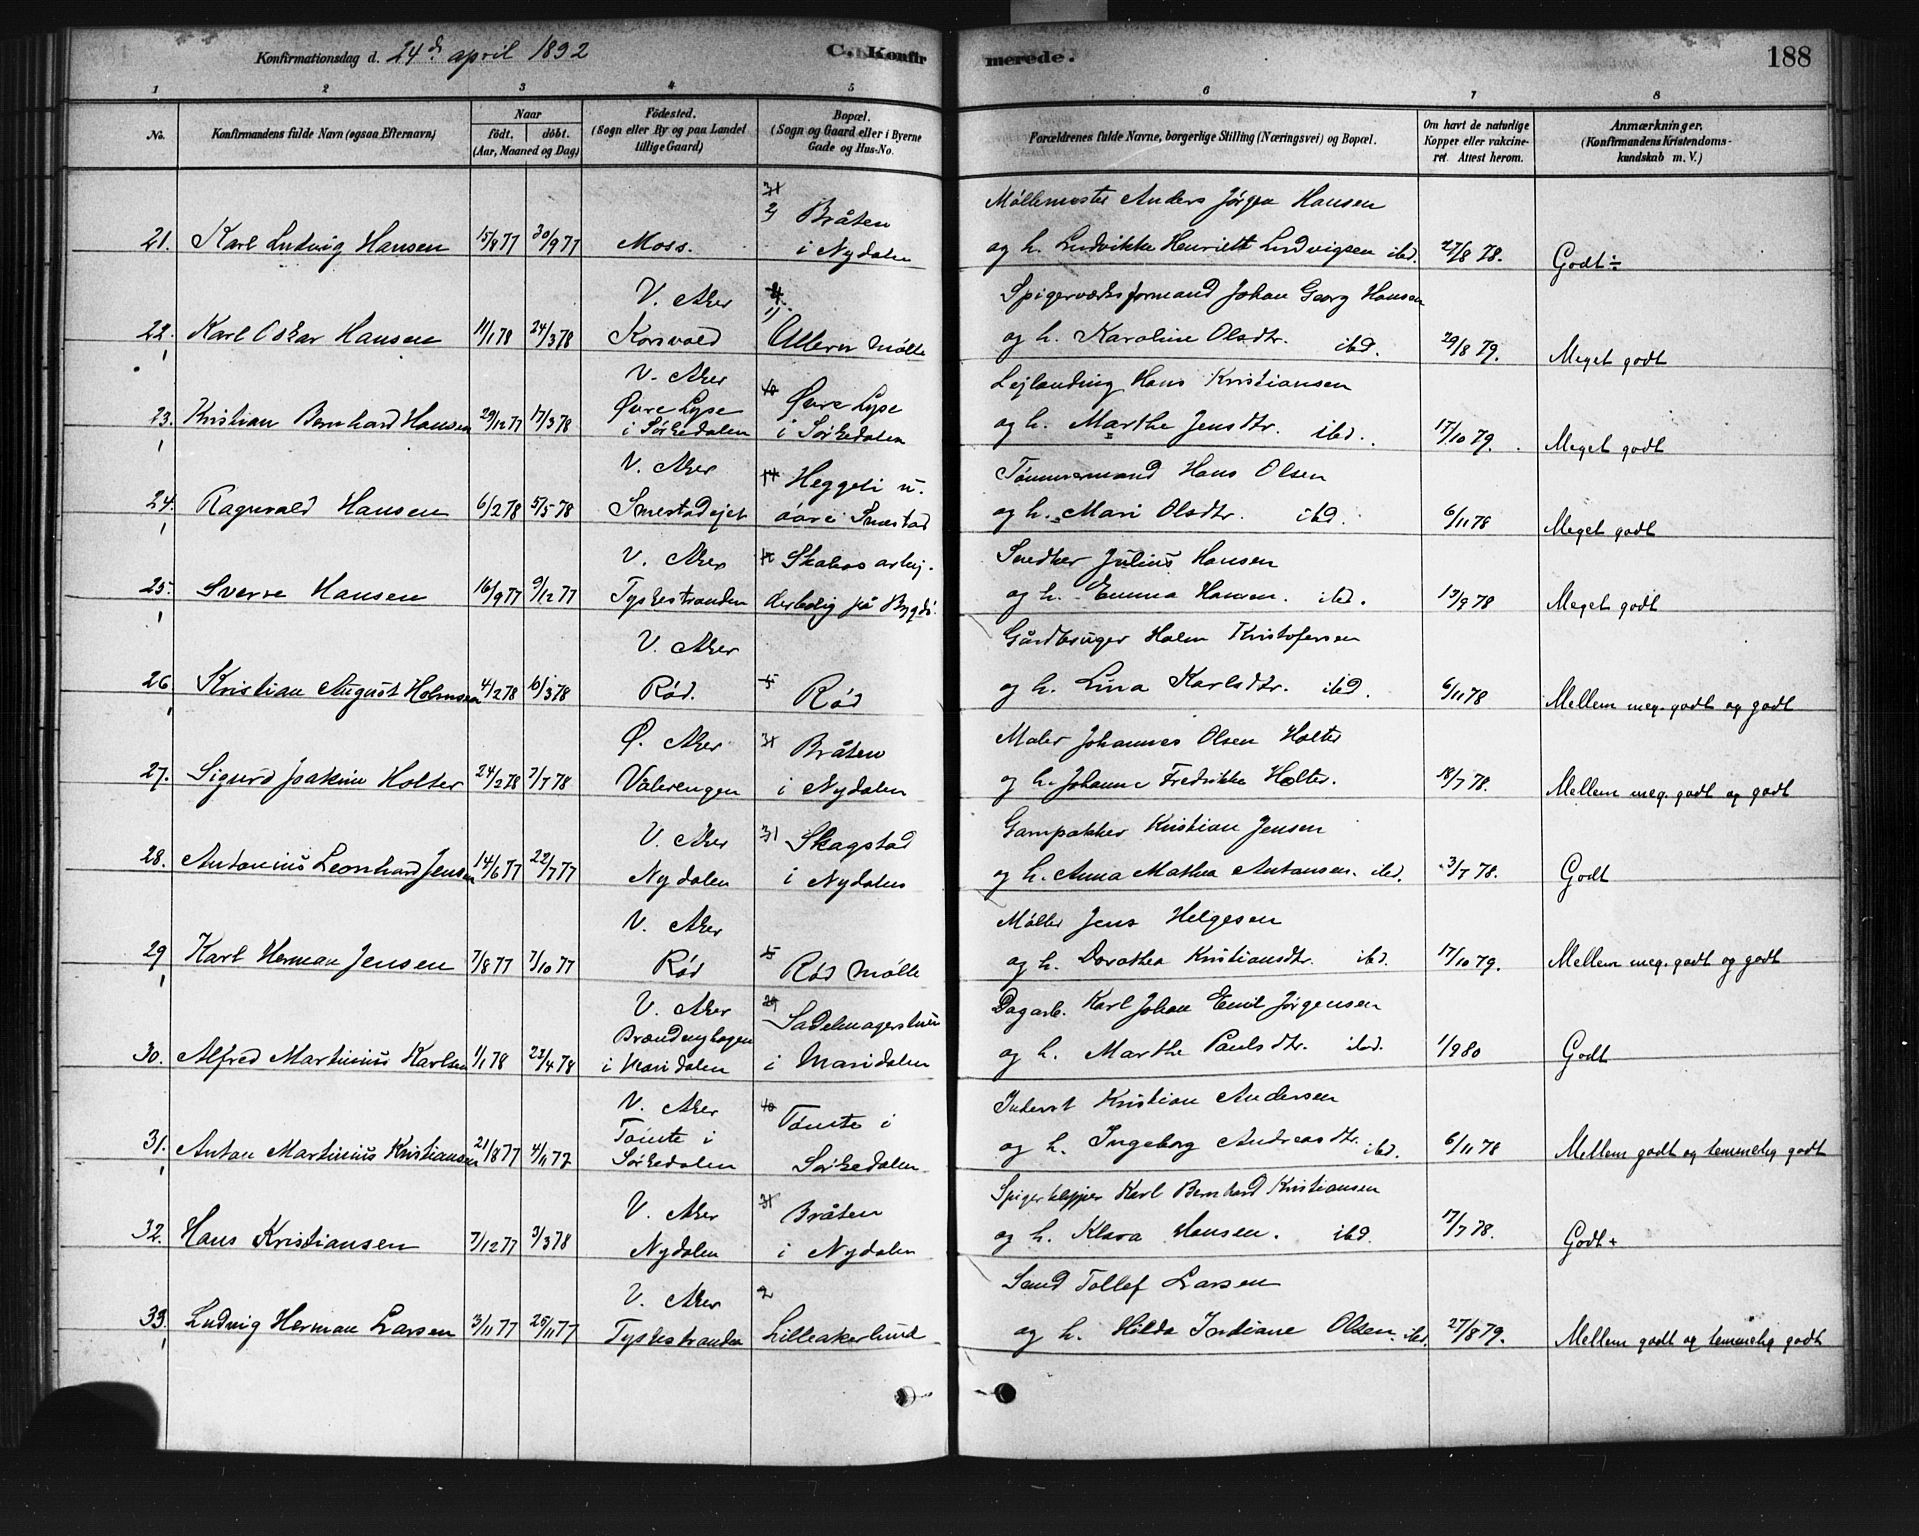 Konfirmationsdag d. 24de april 1892
C. Konfirmerede.
188
1 2 3 4 5 6 7 8
No.
Konfirmandens fulde Navn (ogsaa Efternavn)
Naar
født, døbt.
(Aar, Maaned og Dag)
Fødested.
(Sogn eller By og paa Landet tillige Gaard)
Bopæl.
(Sogn og Gaard eller i Byerne Gade og Hus-No.
Forældrenes fulde Navne, borgerlige Stilling (Næringsvei) og Bopæl.
Om havt de naturlige Kopper eller vakcineret. Attest herom.
Anmærkninger.
(Konfirmandens Kristendomskundskab m. V.)
21. Karl Ludvig Hansen 15/8 77 30/9 77 Moss. Bråten i Nydalen
Møllemester Anders Jørgen Hansen
og h. Ludvikke Henriette Ludvigsen ibd. 27/8 78. Godt ÷
22. Karl Oskar Hansen 11/1 78 24/3 78 V. Aker Korsvold Ullern Mølle
Spigerværksformand Johan Georg Hansen
og h. Karoline Olsdtr. ibd. 29/8 79. Meget godt
23. Kristian Bernhard Hansen 29/12 77 17/3 78 V. Aker Øvre Lyse i Sørkedalen 40 Øvre Lyse i Sørkedalen
Lejlænding Hans Kristiansen
og h. Marthe Jensdtr. ibd. 17/10 79. Meget godt
24. Ragnvald Hansen 6/2 78 5/5 78 V. Aker Smestadejet Heggeli u. øvre Smestad
Tømmermand Hans Olsen
og h. Mari Olsdtr. ibd. 6/11 78 Meget godt
25. Sverre Hansen 16/9 77 9/12 77 V. Aker Tyskestranden Skabos arbejderbolig på Bygdø
Snedker Julius Hansen
og h. Emma Hansen. ibd. 13/9 78 Meget godt
26. Kristian August Holmsen 4/2 78 10/3 78 V. Aker Rød. Rød
Gårdbruger Holm Kristofersen
og h. Lina Karlsdtr. ibd. 6/11 78 Mellem meg. godt og godt
27. Sigurd Joakim Holter 24/2 78 7/7 78 Ø. Aker Vålerengen 31 Bråten i Nydalen
Maler Johannes Olsen Holter
og h. Johanne Fredrikke Holter. 18/7 78. Mellem meg. godt og godt
28. Antonius Leonhard Jensen 14/6 77 22/7 77 V. Aker Nydalen 31 Skagstad i Nydalen
Garnpakker Kristian Jensen
og h. Anna Mathea Antonsen. ibd. 3/7 78. Godt
29 Karl Herman Jensen 7/8 77 7/10 77 V. Aker Rød Rød Mølle
Møller Jens Helgesen
og h. Dorothea Kristiansdtr. ibd. 17/10 79. Mellem meg. godt og godt
30. Alfred Martinius Karlsen 1/1 78 23/4 78 V. Aker Brændenghagen i Maridalen Sadelmagerstuen i Maridalen
Dagarb. Karl Johan Emil Jørgensen
og h. Marthe Paulsdtr. ibd. 1/9 80 Godt
31. Anton Martinius Kristiansen 21/8 77 4/11 77 V. Aker Tømte i Sørkedalen 40 Tømte i Sørkedalen
Inderst Kristian Andersen
og h. Ingeborg Andreasdtr. ibd. 6/11 78 Mellem godt og temmelig godt
32. Hans Kristiansen 7/12 77 3/3 78 V. Aker Nydalen 31 Bråten i Nydalen
Spigerklipper Karl Bernhard Kristiansen
og h. Klara Hansen. ibd. 17/7 78. Godt +
33. Ludvig Herman Larsen 3/11 77 25/11 77 V. Aker Tyskestranden 2 Lilleakerlund
Smed Tollef Larsen
og h. Hilda Indiane Olsen. ibd. 27/8 79. Mellem godt og temmelig godt